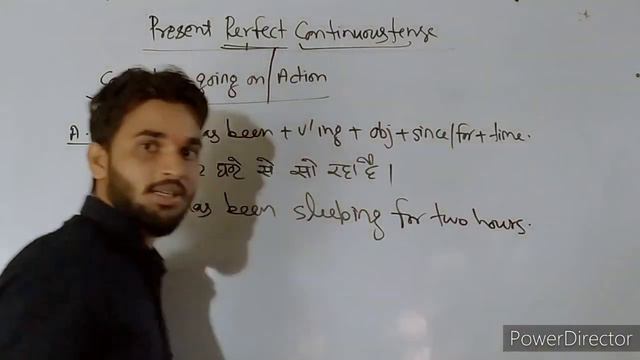 Present Perfect Continuous tense
going on / Action
A. as been + v'ing + obj + since/for + time.
घण्टे से सो रहा है।
as been sleeping for two hours.
PowerDirector